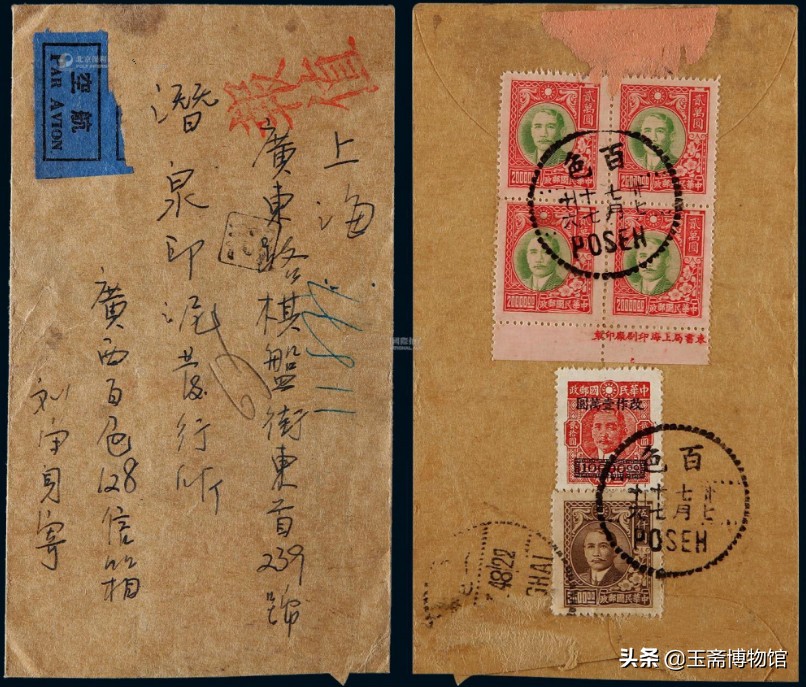 航空
PAR AVION
上海
廣東路棋盤街東首239號
潛泉印泥發行所
廣西百色128信箱
寄
貳萬圓
中華民國郵政
2000000
貳萬圓
中華民國郵政
2000000
貳萬圓
中華民國郵政
2000000
貳萬圓
中華民國郵政
2000000
百色
卅七
七月
十七
十六
POSEH
書局上海印刷廠印
中華民國郵政
改作壹萬圓
百色
卅七
七月
十七
十六
POSEH
中華民國郵政
48/22
GHAI
头条@玉斋博物馆